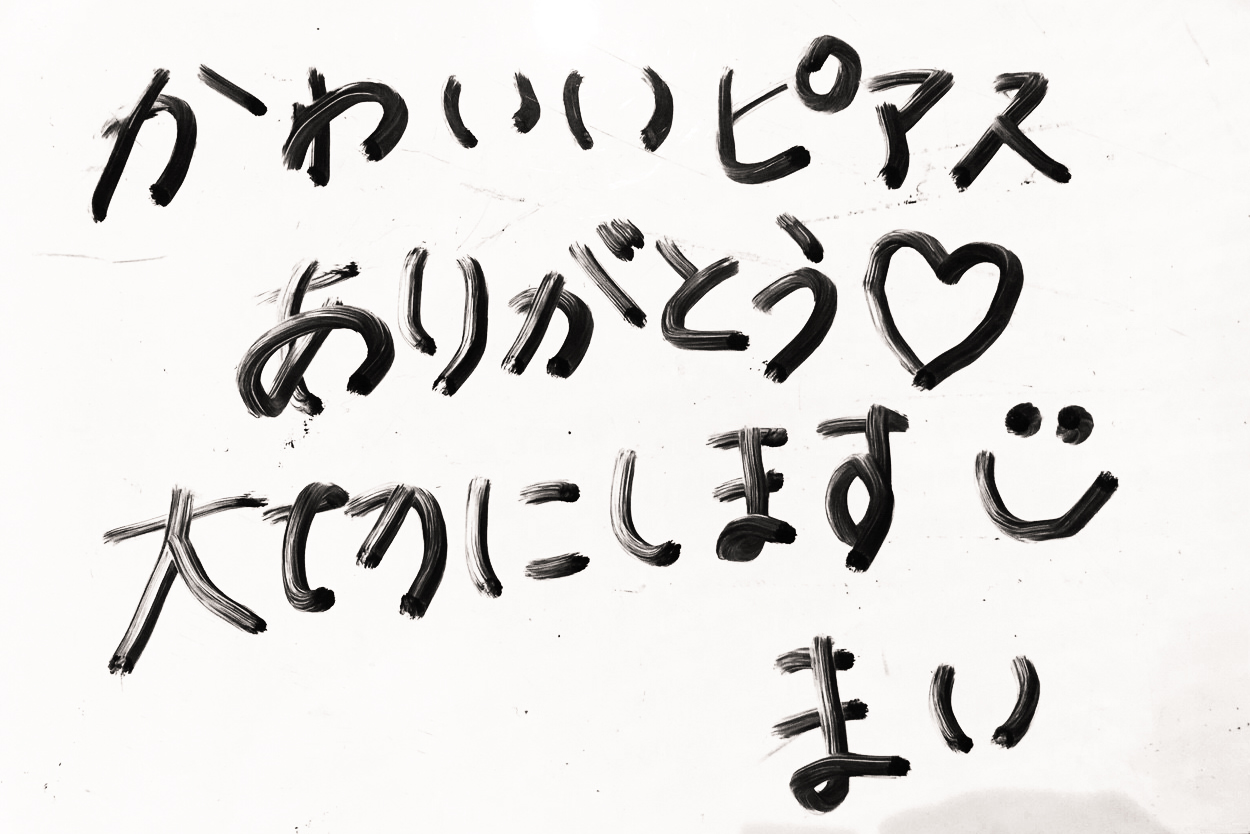 かわいいピアス
ありがとう♡
大切にします
まい